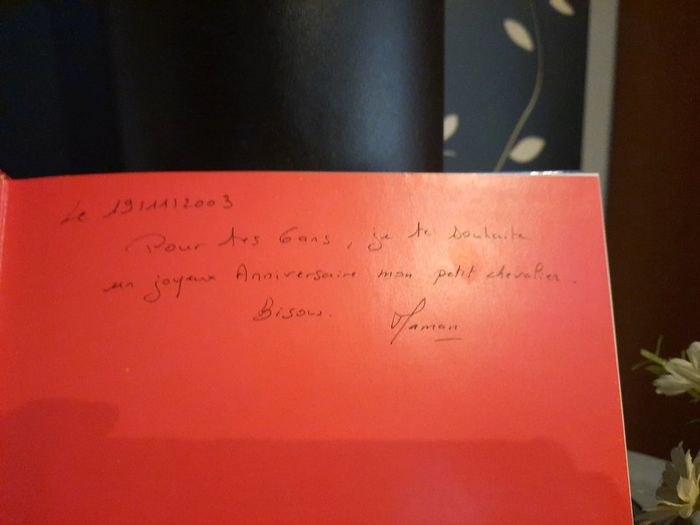 Le 19/11/2003
Pour tes 6 ans, je te souhaite
un joyeux Anniversaire mon petit chevalier.
Bisous. Maman